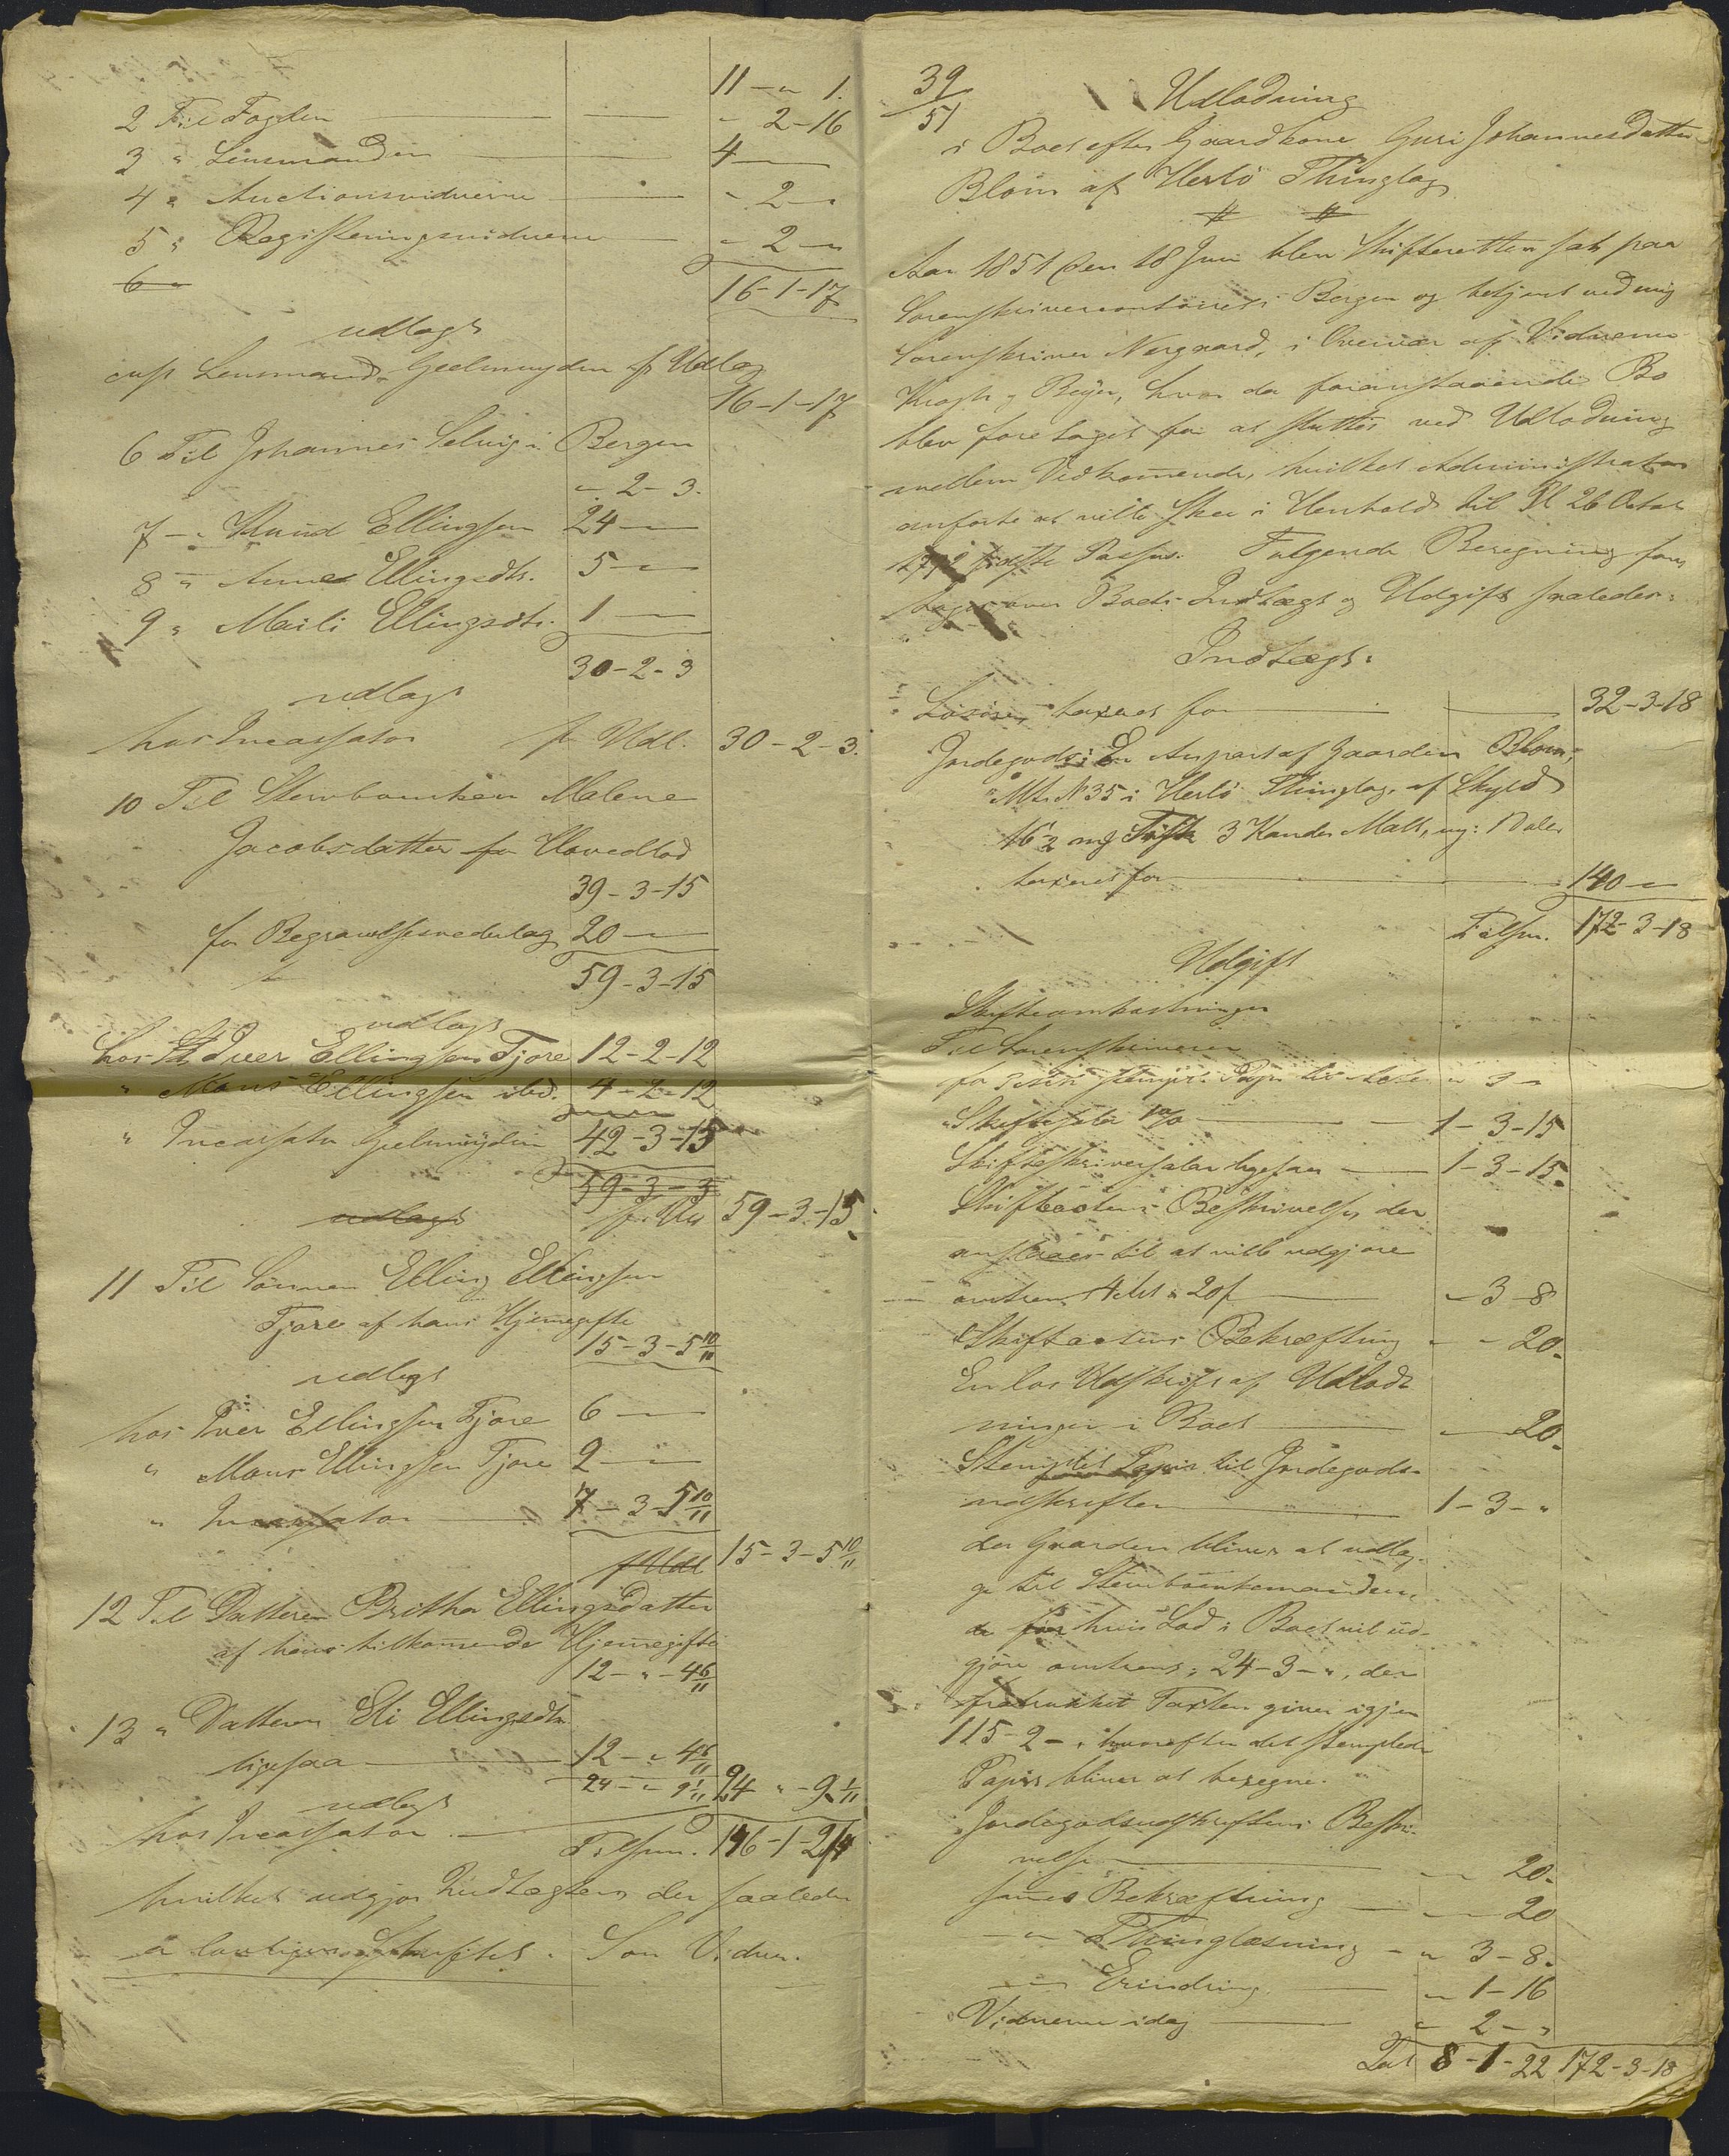 11 - " 1.
2 Til Fogden " 2-16
3 " Lensmanden 4 "
4 " Auctionsvidnerne " 2 "
5 " Registeringsvidnerne " 2 "
6 "
16-1-17
udlagt
Lensmand Geelmuyden f Udlæg
16-1-17
6 Til Johannes Selvig i Bergen
" 2-3.
7 " Knud Ellingsen 24 "
8 " Anne Ellingsdtr. 5 "
9 " Marli Ellingsdtr. 1 "
30-2-3
udlagt
hos Incassator f Udl. 30-2-3.
10 Til Stervboenken Malene
Jacobsdatter for Hovedlod
39-3-15
for Begravelsesvederlag 20 "
59-3-15
udlagt
hos Iver Ellingsen Fjøre 12-2-12
" Mons Ellingsen ibd. 4-2-12
" Incassator Gelmuyden 42-3-15
59-3-3
udlagt f. Udl 59-3-15
11 Til Sönnen Elling Ellingsen
Fjøre af hans Hjemmegifte
15-3-5 10/11
udlagt
hos Iver Ellingsen Fjøre 6 "
" Mons Ellingsen Fjøre 2 "
" Incassator 7-3-5 10/11
f Udl 15-3-5 10/11
12 Til Datteren Britha Ellingsdatter
af hans tilkommende Hjemmegifte
12-"-4 6/11
13 " Datteren Eli Ellingsdtr
ligesaa 12-"-4 6/11
24-"-9 1/11 24 "-9 1/11
udlagt
hos Incassator
Tilsum. 146-1-2
hvilket udgjør Indtægten der saaledes
er lovligen Skiftet. Som Vidner.
39/51
Udlodning
i Boet efter Gaardkone Guri Johannesdatter
Blom af Herlö Thinglag
Aar 1851 den 18 Juni blev Skifteretten sat paa
Sorenskrivercontoiret i Bergen og betjent ved mig
Sorenskriver Norgaard, i Overvær af Vidnerne
Krogh og Beyer, hvor da foranstaaende Bo
blev foretaget for at sluttes ved Udlodning
mellem Vedkommende, hvilket Administrator
anførte at ville skee i Henhold til Pl 26 Octob
sidste Passus. Følgende Beregning fore
tages over Boets Indtægt og Udgift saaledes:
Indtægt:
Løsøre, taxeret for 32-3-18
Jordegods: En Anpart af Gaarden Blom,
Mtr. N 35 i Herlö Thinglag, af Skyld
16 1/2 mg Fisk 3 Kander Malt, ny: 1 Daler
taxeret for 140 "
Tilsm. 172-3-18
Udgift
Skifteomkostninger
Til Sorenskriveren
for stempl. Papir til " 3 "
Skiftesalær 1% 1-3-15
Skifteskriversalær ligesaa 1-3-15.
Skifteactens Beskrivelse der
ansaaes til at ville udgjøre
omtrent 4 Ark a 20 f " 3-8
Skifteactens Bekræftning " - 20.
En løs Udskrift af Udlod-
ningen i Boet " - 20.
Stemplet Papir til Jordegods-
udskriften 1-3-"
der Gaarden bliver at udlæg-
ge til Stervboenkemanden,
hvis Lod i Boet vil ud-
gjøre omtrent: 24-3-", der
fratrukket Taxten giver igjen
115-2-", hvorefter det stemplede
Papir bliver at beregne.
Jordegodsudskriftens Beskri-
velse " " 20.
sammes Bekræftning " " 20
" " Thinglæsning " 3-8.
" " Erindring " 1-16
Vidnerne idag " 2-"
Lat 8-1-22 172-3-18